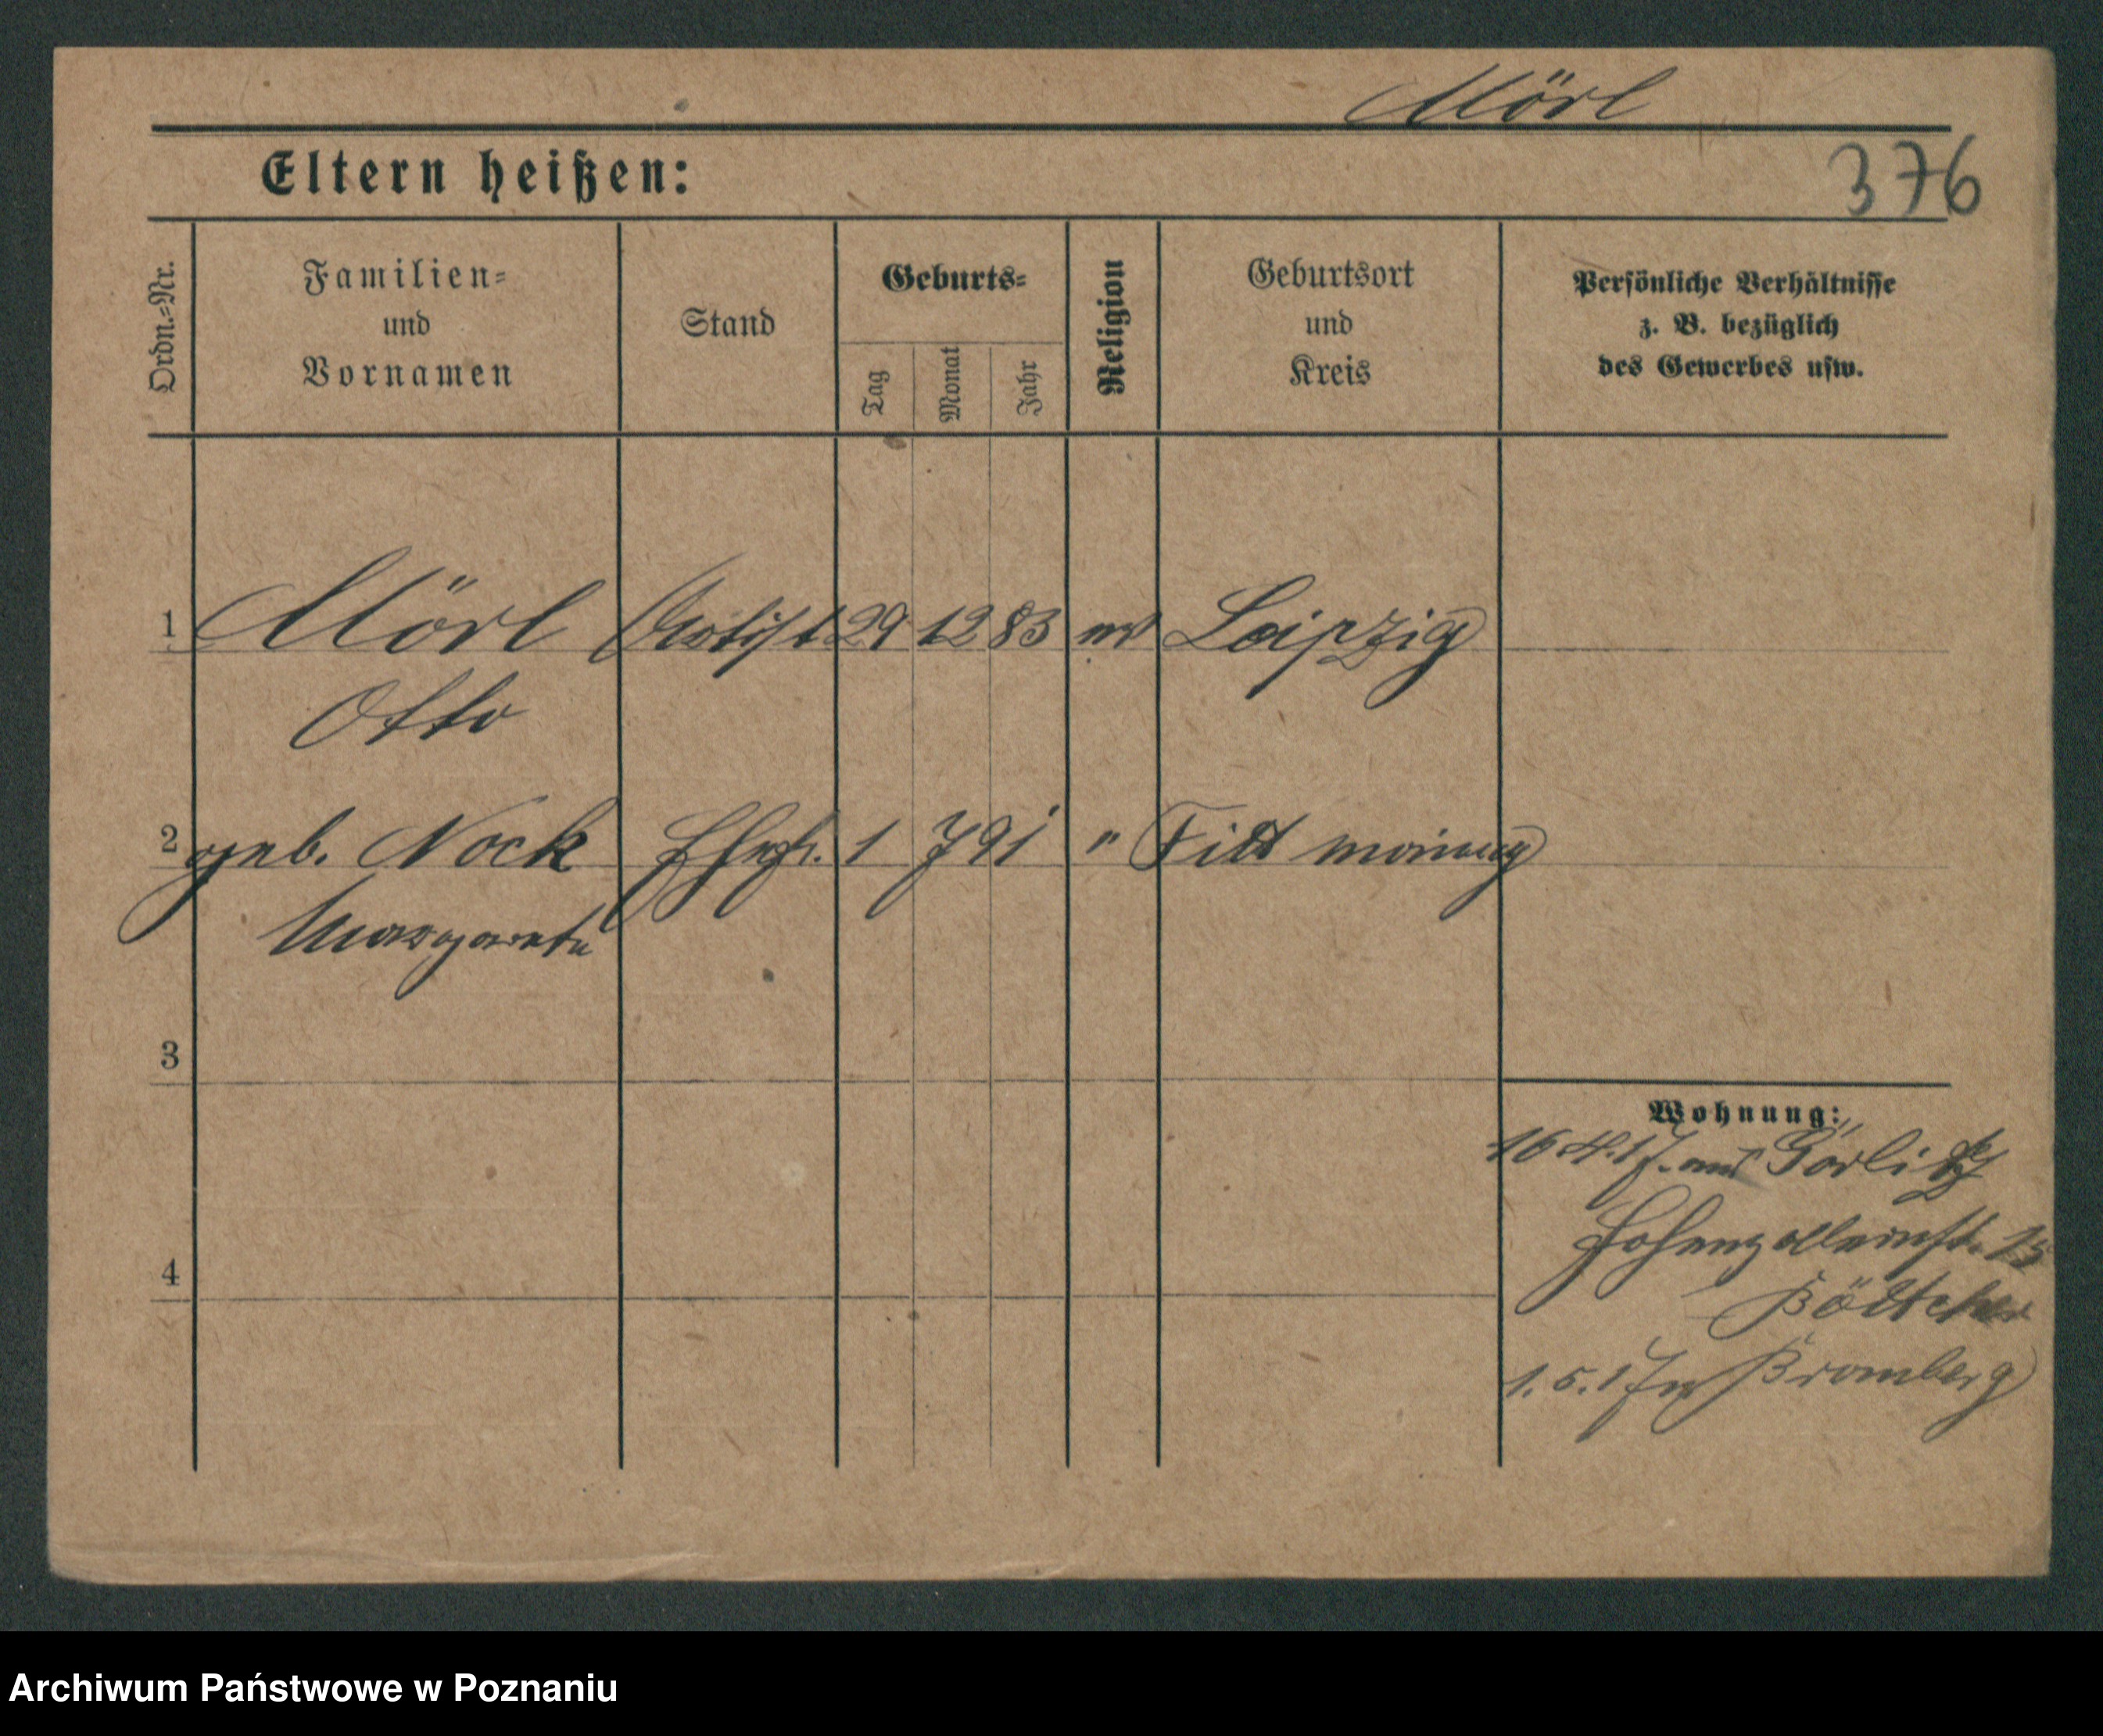 Mörl
Eltern heißen:
376
Ordn.-Nr.
Familien-
und
Vornamen
Stand
Geburts-
Tag
Monat
Jahr
Religion
Geburtsort
und
Kreis
Persönliche Verhältnisse
z. B. bezüglich
des Gewerbes usw.
1 Mörl Artist 29 12 83 ev Leipzig
Otto
2 geb. Nock Ehefr. 1 7 91 "
Margarete
3
Wohnung:
16.4.17. aus Görlitz
Hohenzollernstr. 15
4
1.5.17 Bromberg
Archiwum Państwowe w Poznaniu